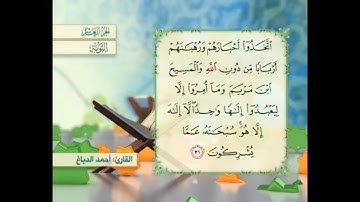 الجزء العاشر
التوبة
اتَّخَذُوا أَحْبَارَهُمْ وَرُهْبَانَهُمْ
أَرْبَابًا مِّن دُونِ اللَّهِ وَالْمَسِيحَ
ابْنَ مَرْيَمَ وَمَا أُمِرُوا إِلَّا
لِيَعْبُدُوا إِلَٰهًا وَاحِدًا لَّا إِلَٰهَ
إِلَّا هُوَ سُبْحَانَهُ عَمَّا
يُشْرِكُونَ ٣١
القارئ: أحمد الدباغ